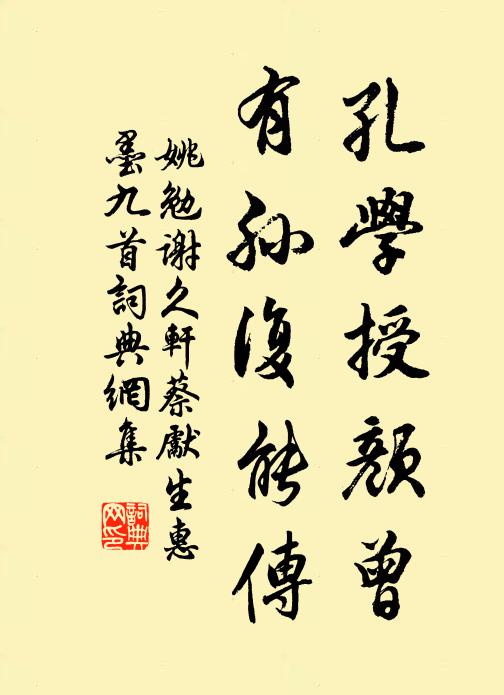 孔學授顏曾
有孫復能傳
姚勉谢久軒蔡獻生惠
墨九首詞典網集
詞典网印